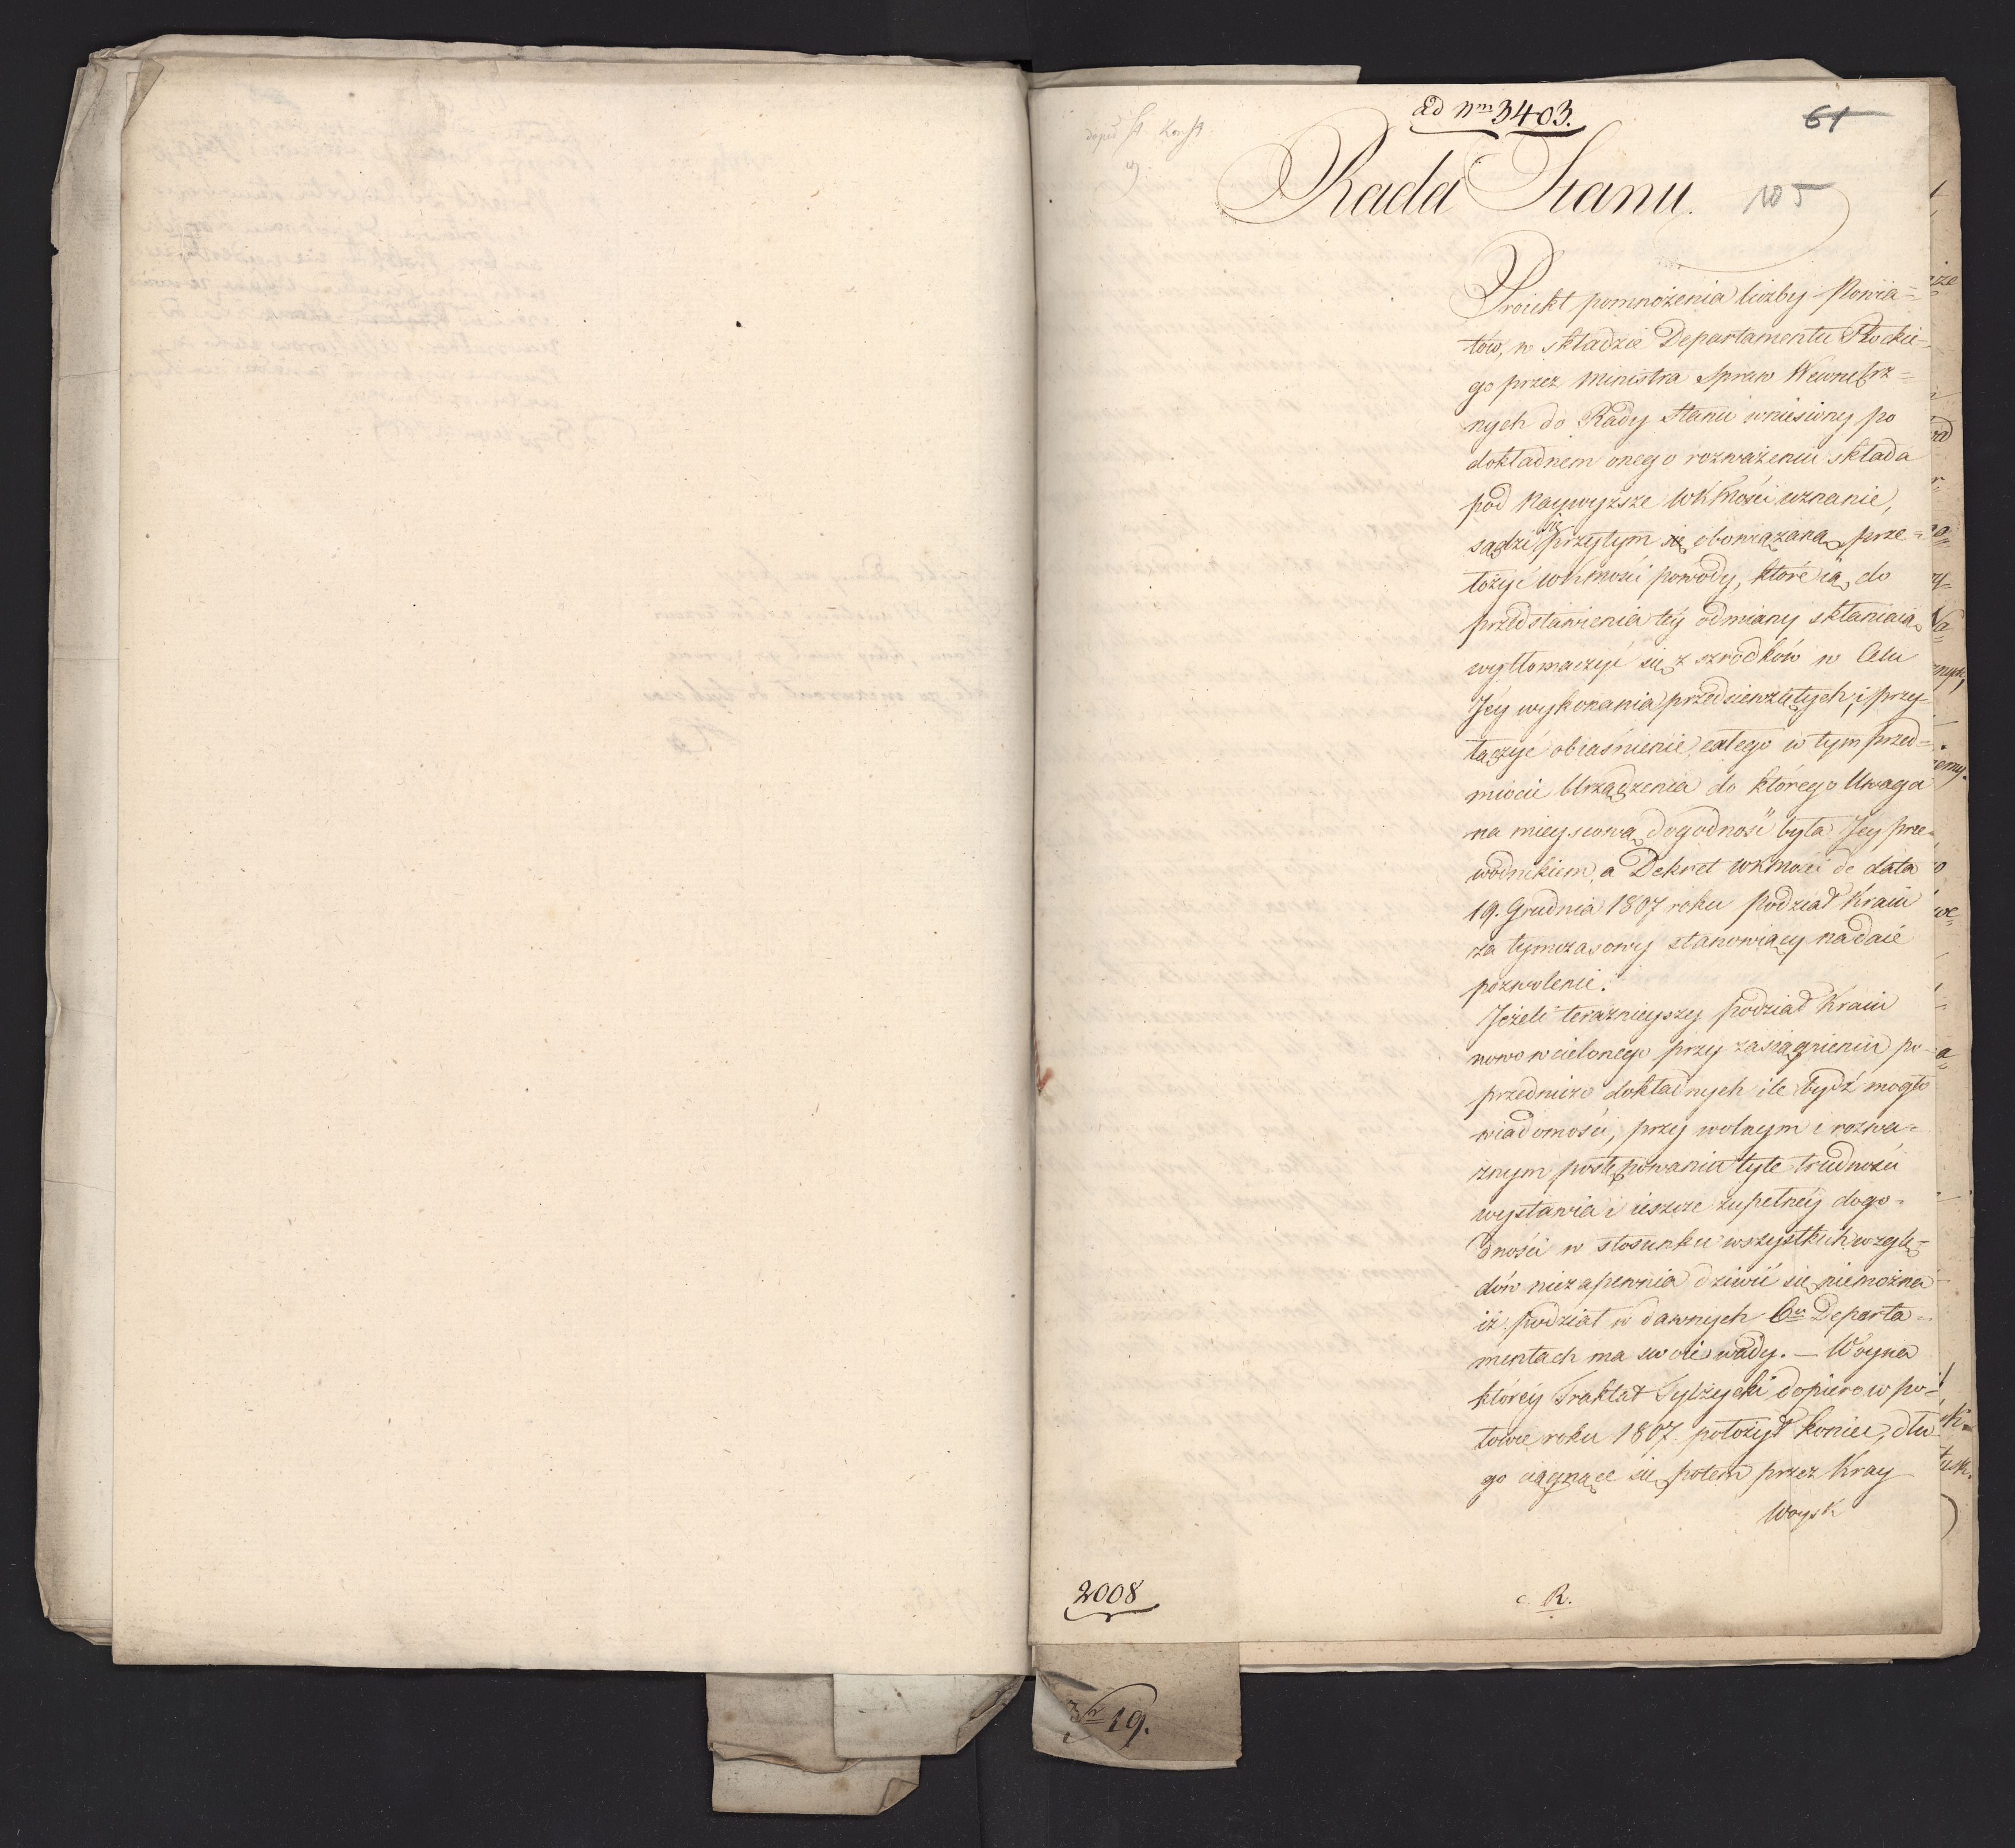 Ad Nrm 3403.
61
Rada Stanu.
105
Proiekt pomnożenia liczby Powia=
tów, w składzie Departamentu Płockie=
go przez Ministra Spraw Wewnętrz=
nych do Rady Stanu wniesiony po
dokładnem onego rozważeniu składa
pod Naywyższe WKMości uznanie,
sądzi się przytym się obowiązaną prze=
łożyć WKMości powody, które ią do
przedstawienia téy odmiany skłaniaią
wytłomaczyć się z szrodków w Celu
Jéy wykonania przedsiewziętych, i przy=
łączyć obiaśnienie całego w tym przed=
miocie Urządzenia do którego Uwaga
na mieyscową dogodność była Jey prze=
wodnikiem, a Dekret WKMości de data
19. Grudnia 1807 roku Podział Kraiu
za tymczasowy stanowiący nadaie
pozwolenie.
Jeżeli teraznieyszy podział Kraiu
nowo wcielonego przy zasiągnieniu po=
przedniczo dokładnych ile bydź mogło
wiadomości, przy wolnym i rozwa=
żnym postępowaniu tyle trudności
wystawia i ieszcze zupełnéy dogo=
dności w stosunku wszystkich wzglę=
dów niezapewnia dziwić się niemożna
iż podział w dawnych 6u Departa=
mentach ma swoie wady. — Woyna
któréy Traktat Tylżycki dopiero w po=
łowie roku 1807 położył koniec, dłu
go ciągnące się potem przez Kray
Woysk
2008
R.
19.